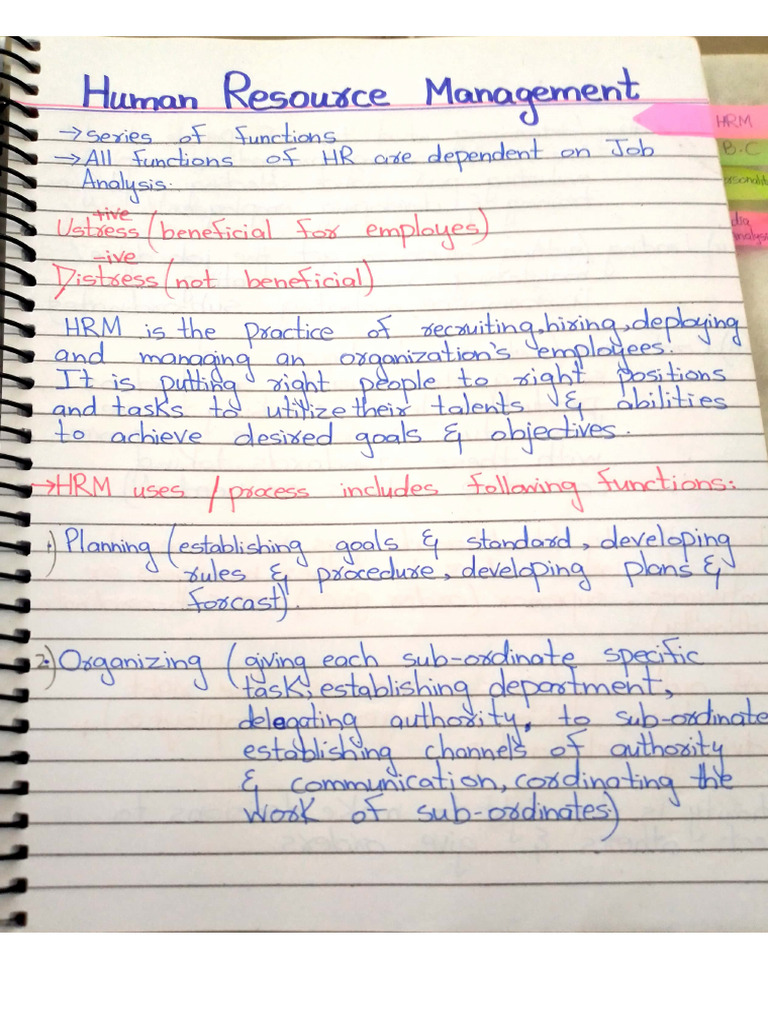 Human Resource Management
→ series of functions
→ All functions of HR are dependent on Job
Analysis.
+ive
Ustress (beneficial for employes)
-ive
Distress (not beneficial)
HRM is the practice of recruiting, hiring, deploying
and managing an organization's employees.
It is putting right people to right positions
and tasks to utilize their talents & abilities
to achieve desired goals & objectives.
→ HRM uses / process includes following functions:
1) Planning (establishing goals & standard, developing
rules & procedure, developing plans &
forcast).
2) Organizing (giving each sub-ordinate specific
task, establishing department,
delegating authority, to sub-ordinate
establishing channels of authority
& communication, cordinating the
work of sub-ordinates)
HRM
B.C